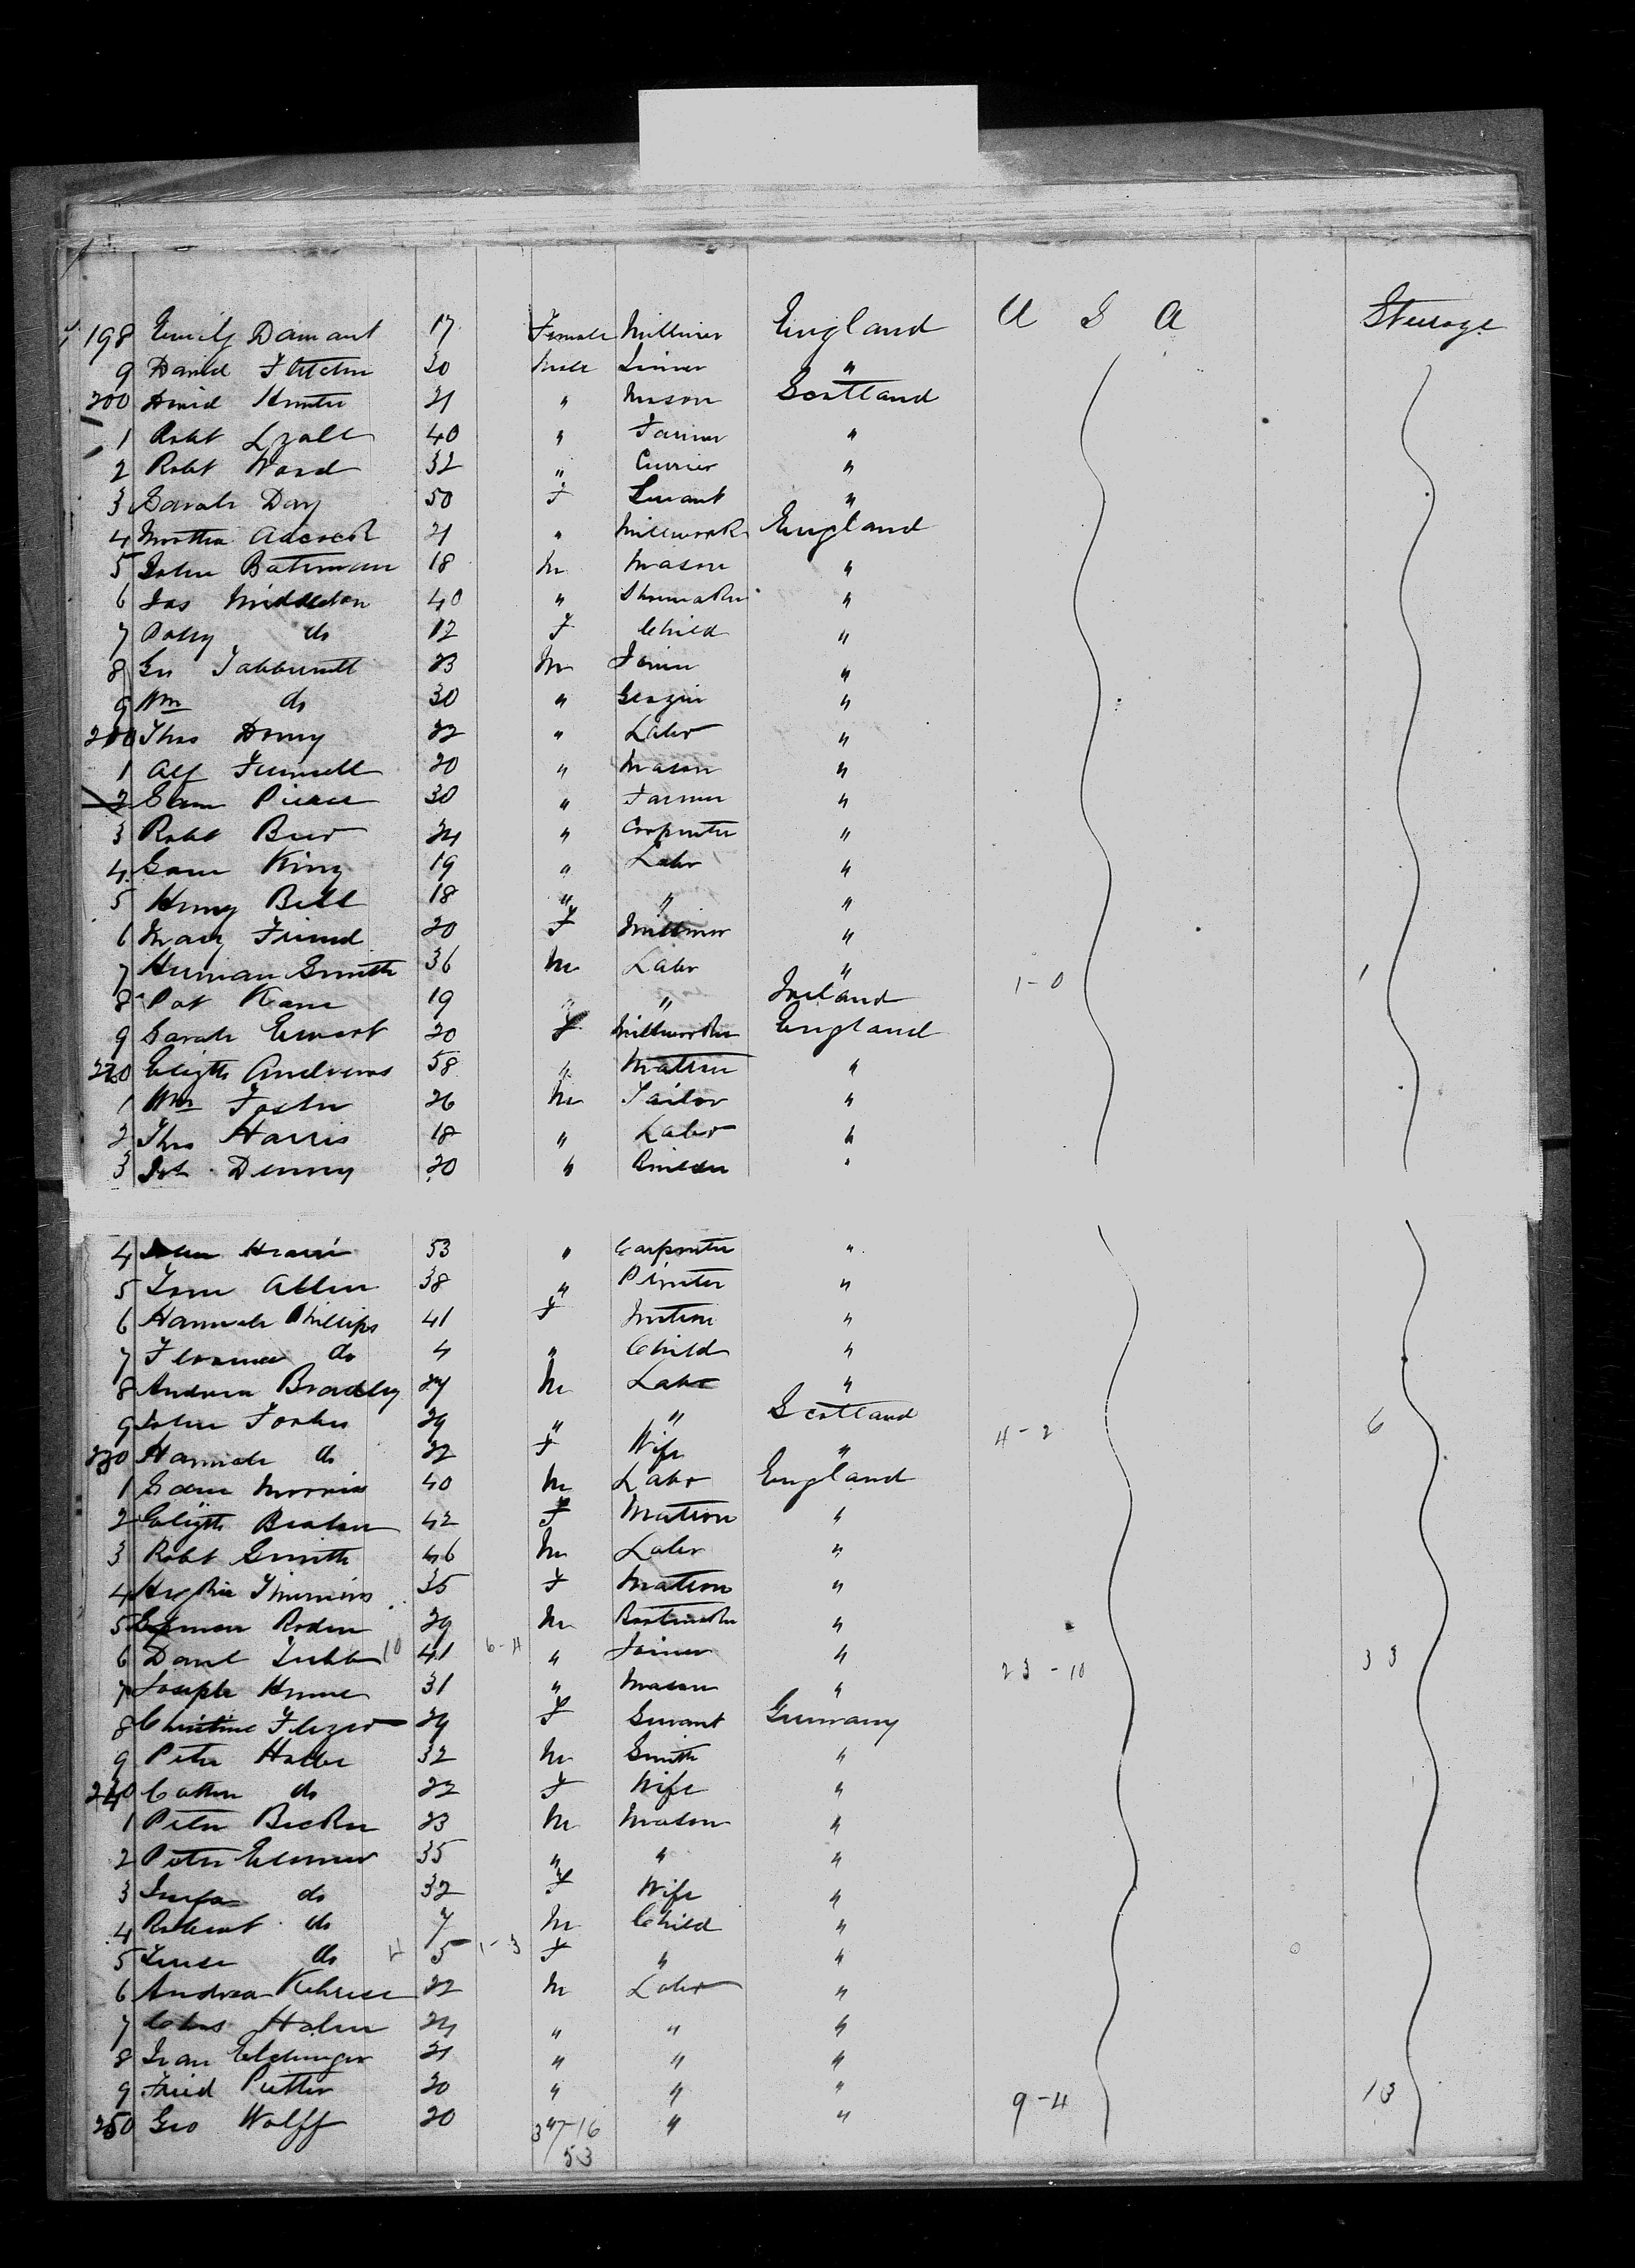 198 Emily Damant 17 Female Milliner England U S A Steerage
9 David Fletcher 30 Male Joiner "
200 David Hunter 21 " Mason Scotland
1 Robt Lyall 40 " Farmer "
2 Robt Ward 32 " Currier "
3 Sarah Day 50 F Servant "
4 Martha Adcock 21 " Millwork England
5 John Bateman 18 M Mason "
6 Jas Middleton 40 " Shoemaker "
7 Polly do 12 F Child "
8 Tabburnett 23 M Joiner "
9 Wm do 30 " Grazier "
210 Thos Henry 22 " Labr "
1 Alf Funnell 20 " Mason "
2 Sam Pierce 30 " Farmer "
3 Robt 24 " Carpenter "
4 Sam King 19 " Labr "
5 Henry Bell 18 " " "
6 Mary Friend 20 F Milliner "
7 Herman Smith 36 M Labr " 1-0 1
8 Pat Kane 19 " " Ireland
9 Sarah Ewart 20 F Millworker England
220 Elizth Andrews 58 " Matron "
1 Wm Foster 26 M Tailor "
2 Thos Harris 18 " Labr "
3 Denny 20 " Builder "
4 John 53 " Carpenter "
5 Allen 38 " Printer "
6 Hannah Phillips 41 F Matron "
7 Florence do 4 " Child "
8 Andrew Bradley 27 M Labr "
9 John Forbes 29 " " Scotland 4-2 6
230 Hannah do 22 F Wife "
1 Sam Morris 40 M Labr England
2 Elizth 42 F Matron "
3 Robt Smith 46 M Labr "
4 Timmins 35 F Matron "
5 Roden 29 M Bootmaker "
6 Danl 10 41 6-4 " Joiner " 23-10 33
7 Joseph Hume 31 " Mason "
8 Christine 29 F Servant Germany
9 Peter 32 M Smith "
240 Cathn do 22 F Wife "
1 Peter Becker 23 M Mason "
2 Peter 35 " " "
3 do 32 F Wife "
4 do 7 M Child "
5 do 4 5 1-3 F " "
6 Andrea 22 M Labr "
7 Hahn 24 " " "
8 21 " " "
9 20 " " " 9-4 13
250 Geo Wolff 20 37-16 " "
53